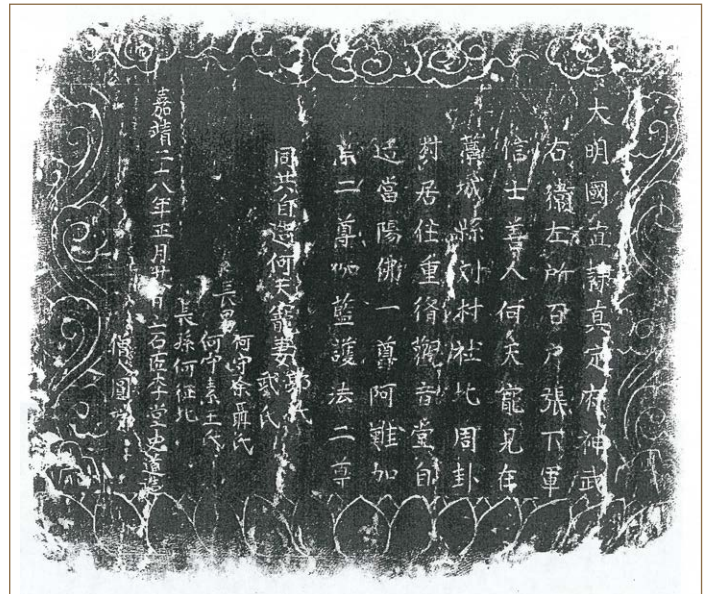 大明國直隸真定府神武
右衛左所百户張下軍
信士善人何天寵見在
藁城縣刘村社北周卦
村居住重脩觀音堂自
造當陽佛一尊阿難加
葉二尊伽藍護法二尊
同共自造何天寵妻郭氏
武氏
長男何守余聶氏
何守素王氏
長孫何征北
嘉靖二十八年正月廿日立石匠李堂史道
僧人圓